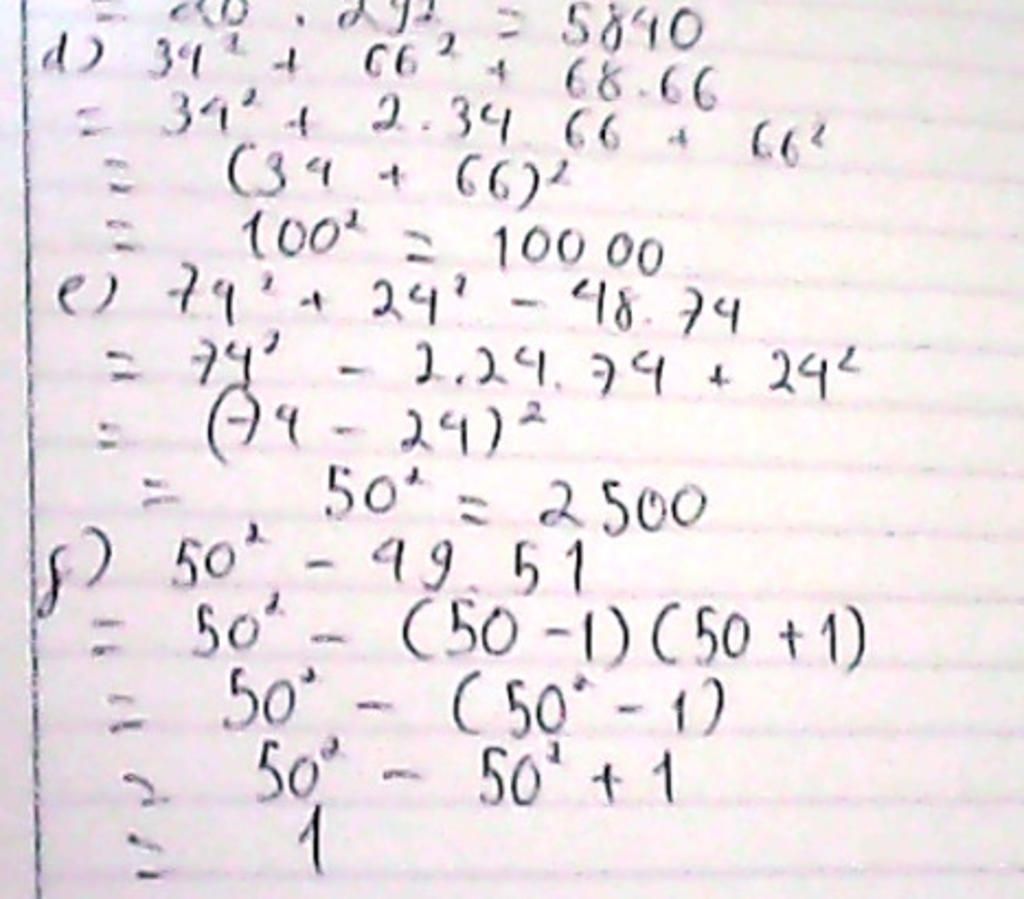 = 20 . 292 = 5840
d) 34² + 66² + 68.66
= 34² + 2.34.66 + 66²
= (34 + 66)²
= 100² = 10000
e) 74² + 24² - 48.74
= 74² - 2.24.74 + 24²
= (74 - 24)²
= 50² = 2500
f) 50² - 49.51
= 50² - (50 - 1)(50 + 1)
= 50² - (50² - 1)
= 50² - 50² + 1
= 1